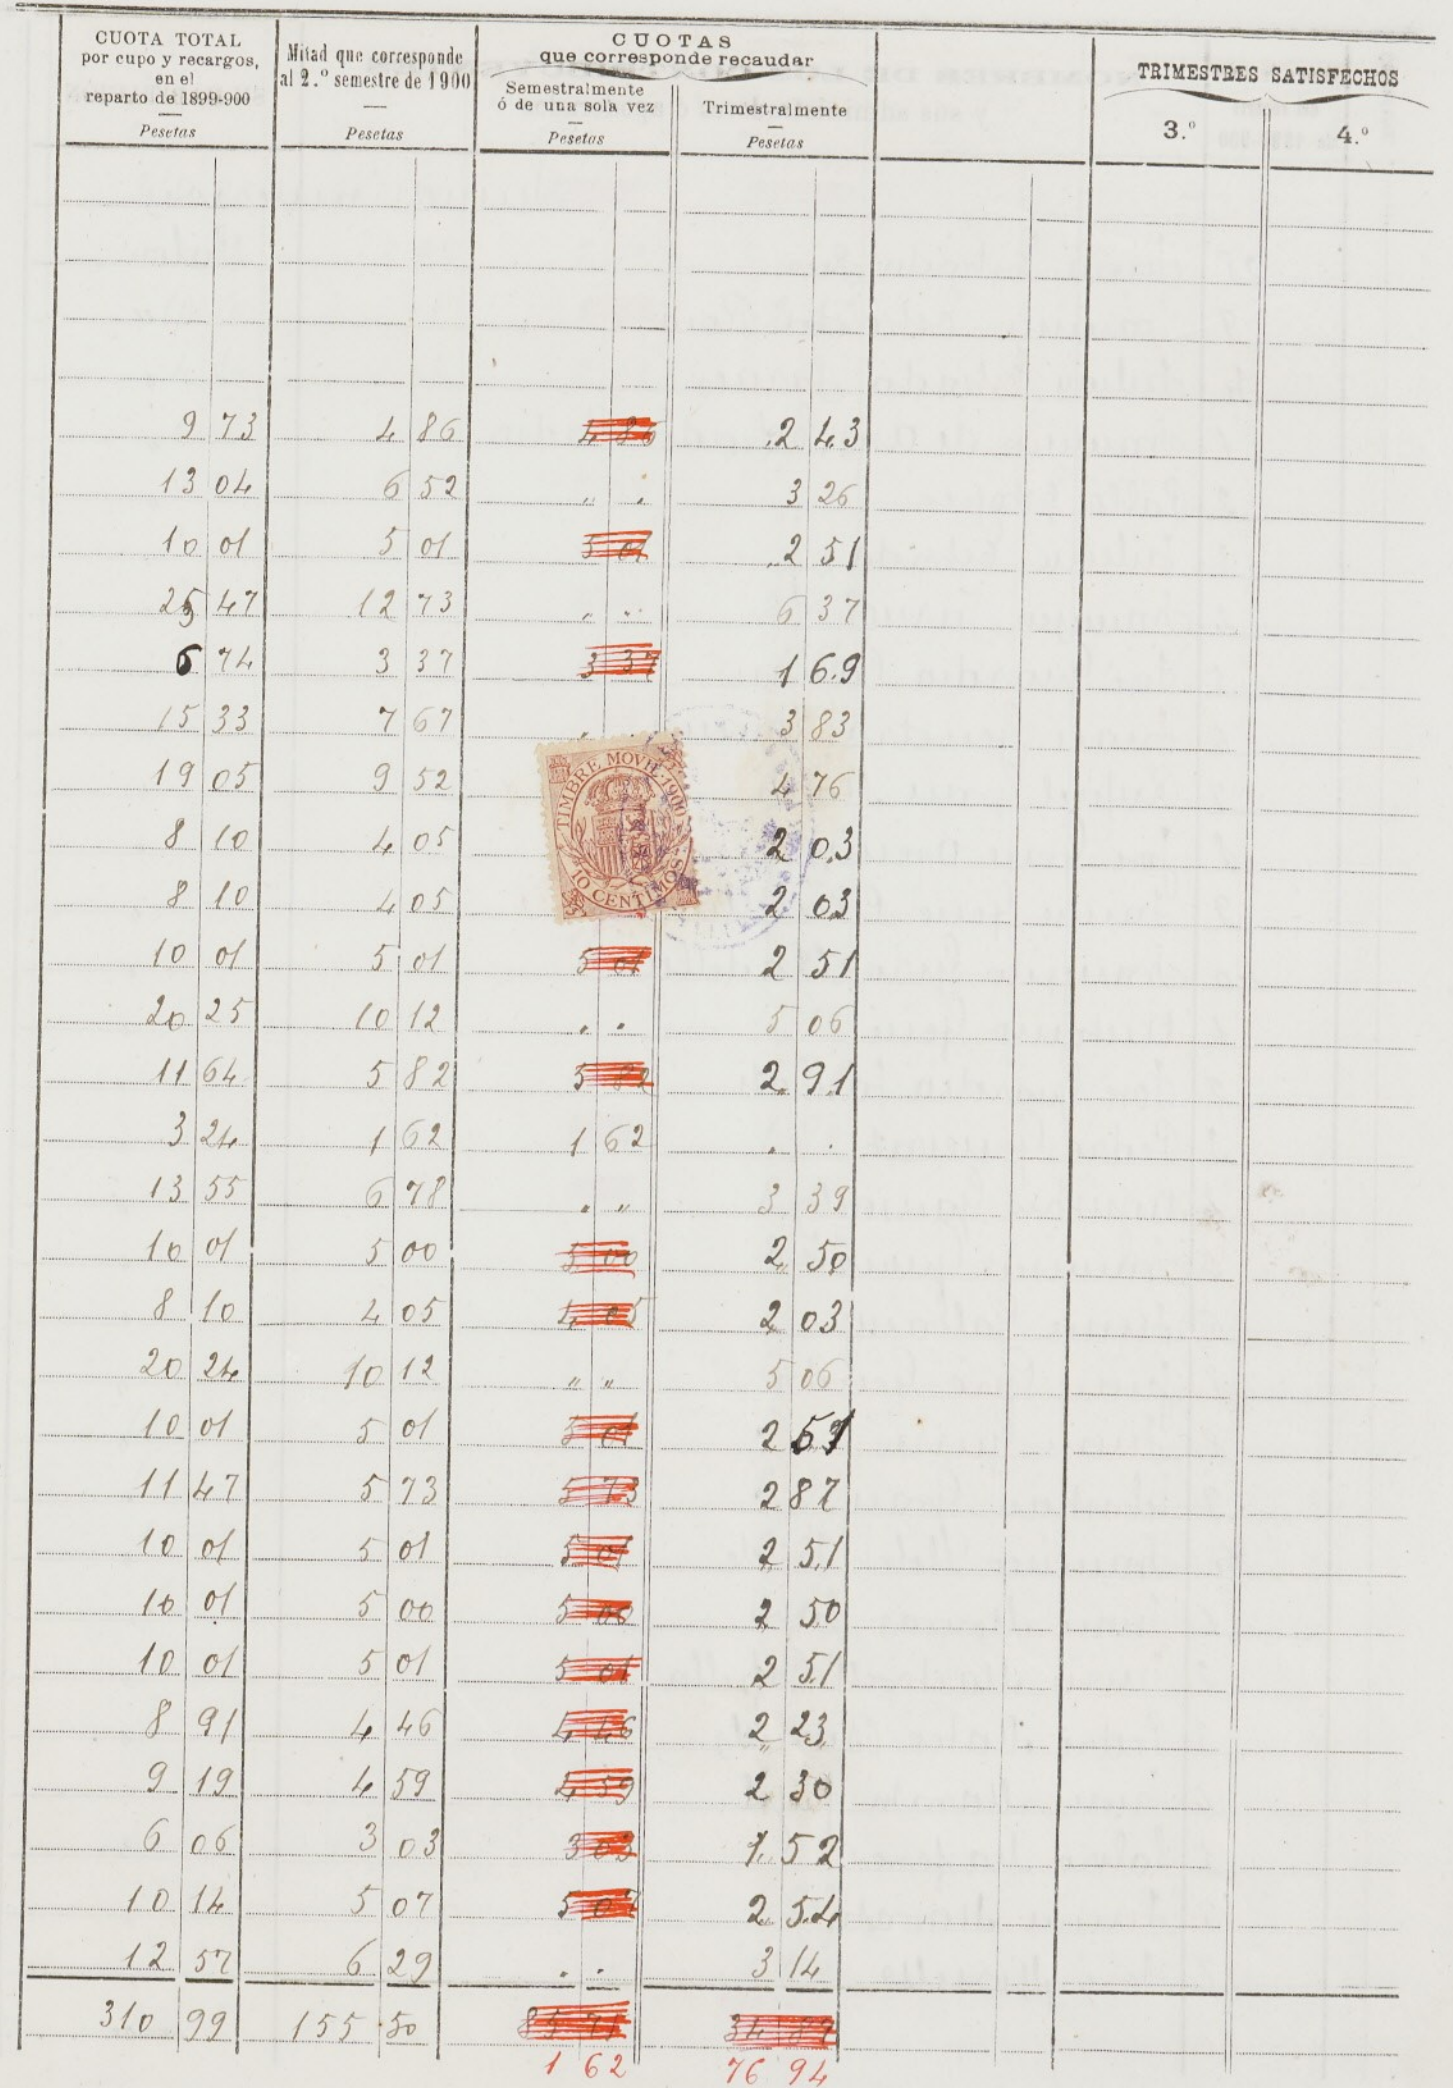 CUOTA TOTAL
por cupo y recargos,
en el
reparto de 1899-900
Pesetas
Mitad que corresponde
al 2.º semestre de 1900
Pesetas
CUOTAS
que corresponde recaudar
Semestralmente
ó de una sola vez
Pesetas
Trimestralmente
Pesetas
TRIMESTRES SATISFECHOS
3.º
4.º
9 73 4 86 4 86 2 43
13 04 6 52 " . 3 26
10 01 5 01 5 01 2 51
25 47 12 73 " " 6 37
6 74 3 37 3 37 1 69
15 33 7 67 3 83
19 05 9 52 4 76
8 10 4 05 2 03
8 10 4 05 2 03
TIMBRE MOVIL·1900
10 CENTIMOS
10 01 5 01 5 01 2 51
20 25 10 12 . . 5 06
11 64 5 82 5 82 2 91
3 24 1 62 1 62 . .
13 55 6 78 . " 3 39
10 01 5 00 5 00 2 50
8 10 4 05 4 05 2 03
20 24 10 12 " " 5 06
10 01 5 01 5 01 2 51
11 47 5 73 5 73 2 87
10 01 5 01 5 01 2 51
10 01 5 00 5 00 2 50
10 01 5 01 5 01 2 51
8 91 4 46 4 46 2 23
9 19 4 59 4 59 2 30
6 06 3 03 3 03 1 52
10 14 5 07 5 07 2 54
12 57 6 29 . . 3 14
310 99 155 50
1 62 76 94